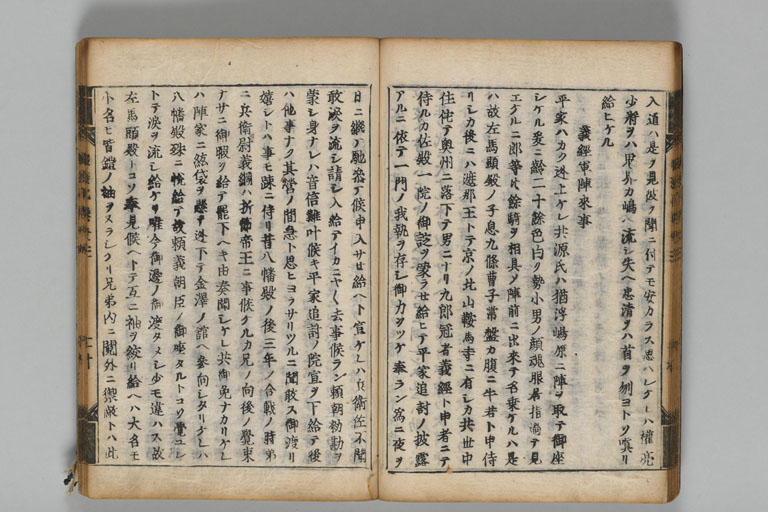 入道ハ是ヲ見給フ聞ニ付テモ安カラス思ハレケレハ權亮
少將ヲハ鬼界カ嶋ヘ流シ失ヘ忠清ヲハ首ヲ刎ヨトソ嗔リ
給ヒケル
義經軍陣來事
平家ハカク迯上ケレ共源氏ハ猶浮嶋原ニ陣ヲ取テ御座
シケル爰ニ齡二十餘色白ク勢小男ノ顔魂眼居指過テ見
エケルニ郎等 餘騎ヲ相具ソ陣前ニ出來テ名乘ケルハ是
ハ故左馬頭殿ノ子息九條曹子常盤カ腹ニ牛若ト申侍
リシカ後ニハ遮那王トテ京ノ北山鞍馬寺ニ有シカ共世中
住侘テ奥州ニ落下テ男ニナリ九郎冠者義經ト申者ニテ
侍ルカ佐殿一院ノ御諚ヲ蒙ラセ給ヒテ平家追討ノ披露
アルニ依テ一門ノ我執ヲ存シ御力ヲツケ奉ラン爲ニ夜ヲ
日ニ繼テ馳參テ候申入サセ給ヘト宣ケレハ兵衛佐不聞
敢涙ヲ流シ請シ入給テイカニヤ〱去事候ラン頼朝勅勘ヲ
蒙シ身ナレハ音信雖叶候キ平家追討ノ院宣ヲ下給テ後
ハ他事ナク其營ノ間急ト思ヒヨラサリツルニ聞敢ス御渡リ
嬉シトハ事モ疎ニ侍リ昔八幡殿ノ後三年ノ合戰ノ時弟
ニ兵衛尉義綱ハ折節帝王ニ事候クルカ兄ノ向後ノ覺束
ナサニ御暇ヲ給テ罷下ヘキ由奏聞シケレ共御免ナカリケレ
ハ陣家ニ 袋ヲ懸テ迯下テ金澤ノ舘ヘ參向シタリケレハ
八幡殿殊ニ悅給テ故頼義朝臣ノ御座タルトコソ覺ユレ
トテ涙ヲ流シ給ケリ唯今御邊ノ御渡タメシ少モ違ハス故
左馬頭殿トコソ奉見候ヘトテ互ニ袖ヲ絞リ給ヘハ大名モ
小名モ皆鎧ノ袖ヲヌラシケリ兄弟内ニ鬩外ニ禦敵トハ此